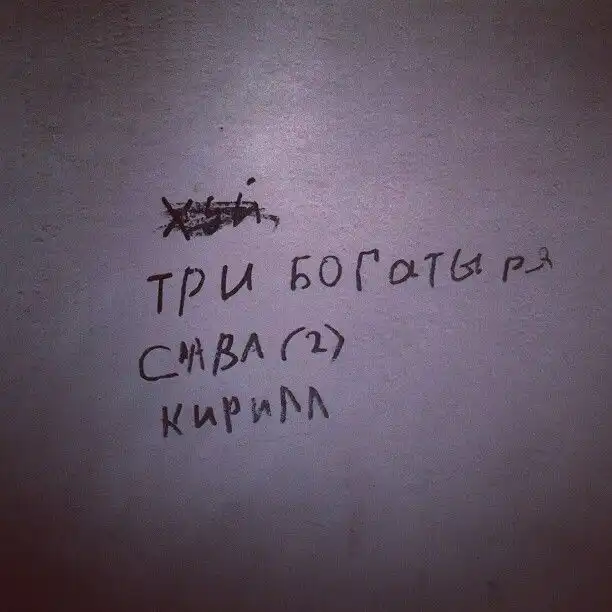 ТРИ БОГАТЫРЯ
САВА (2)
КИРИЛЛ